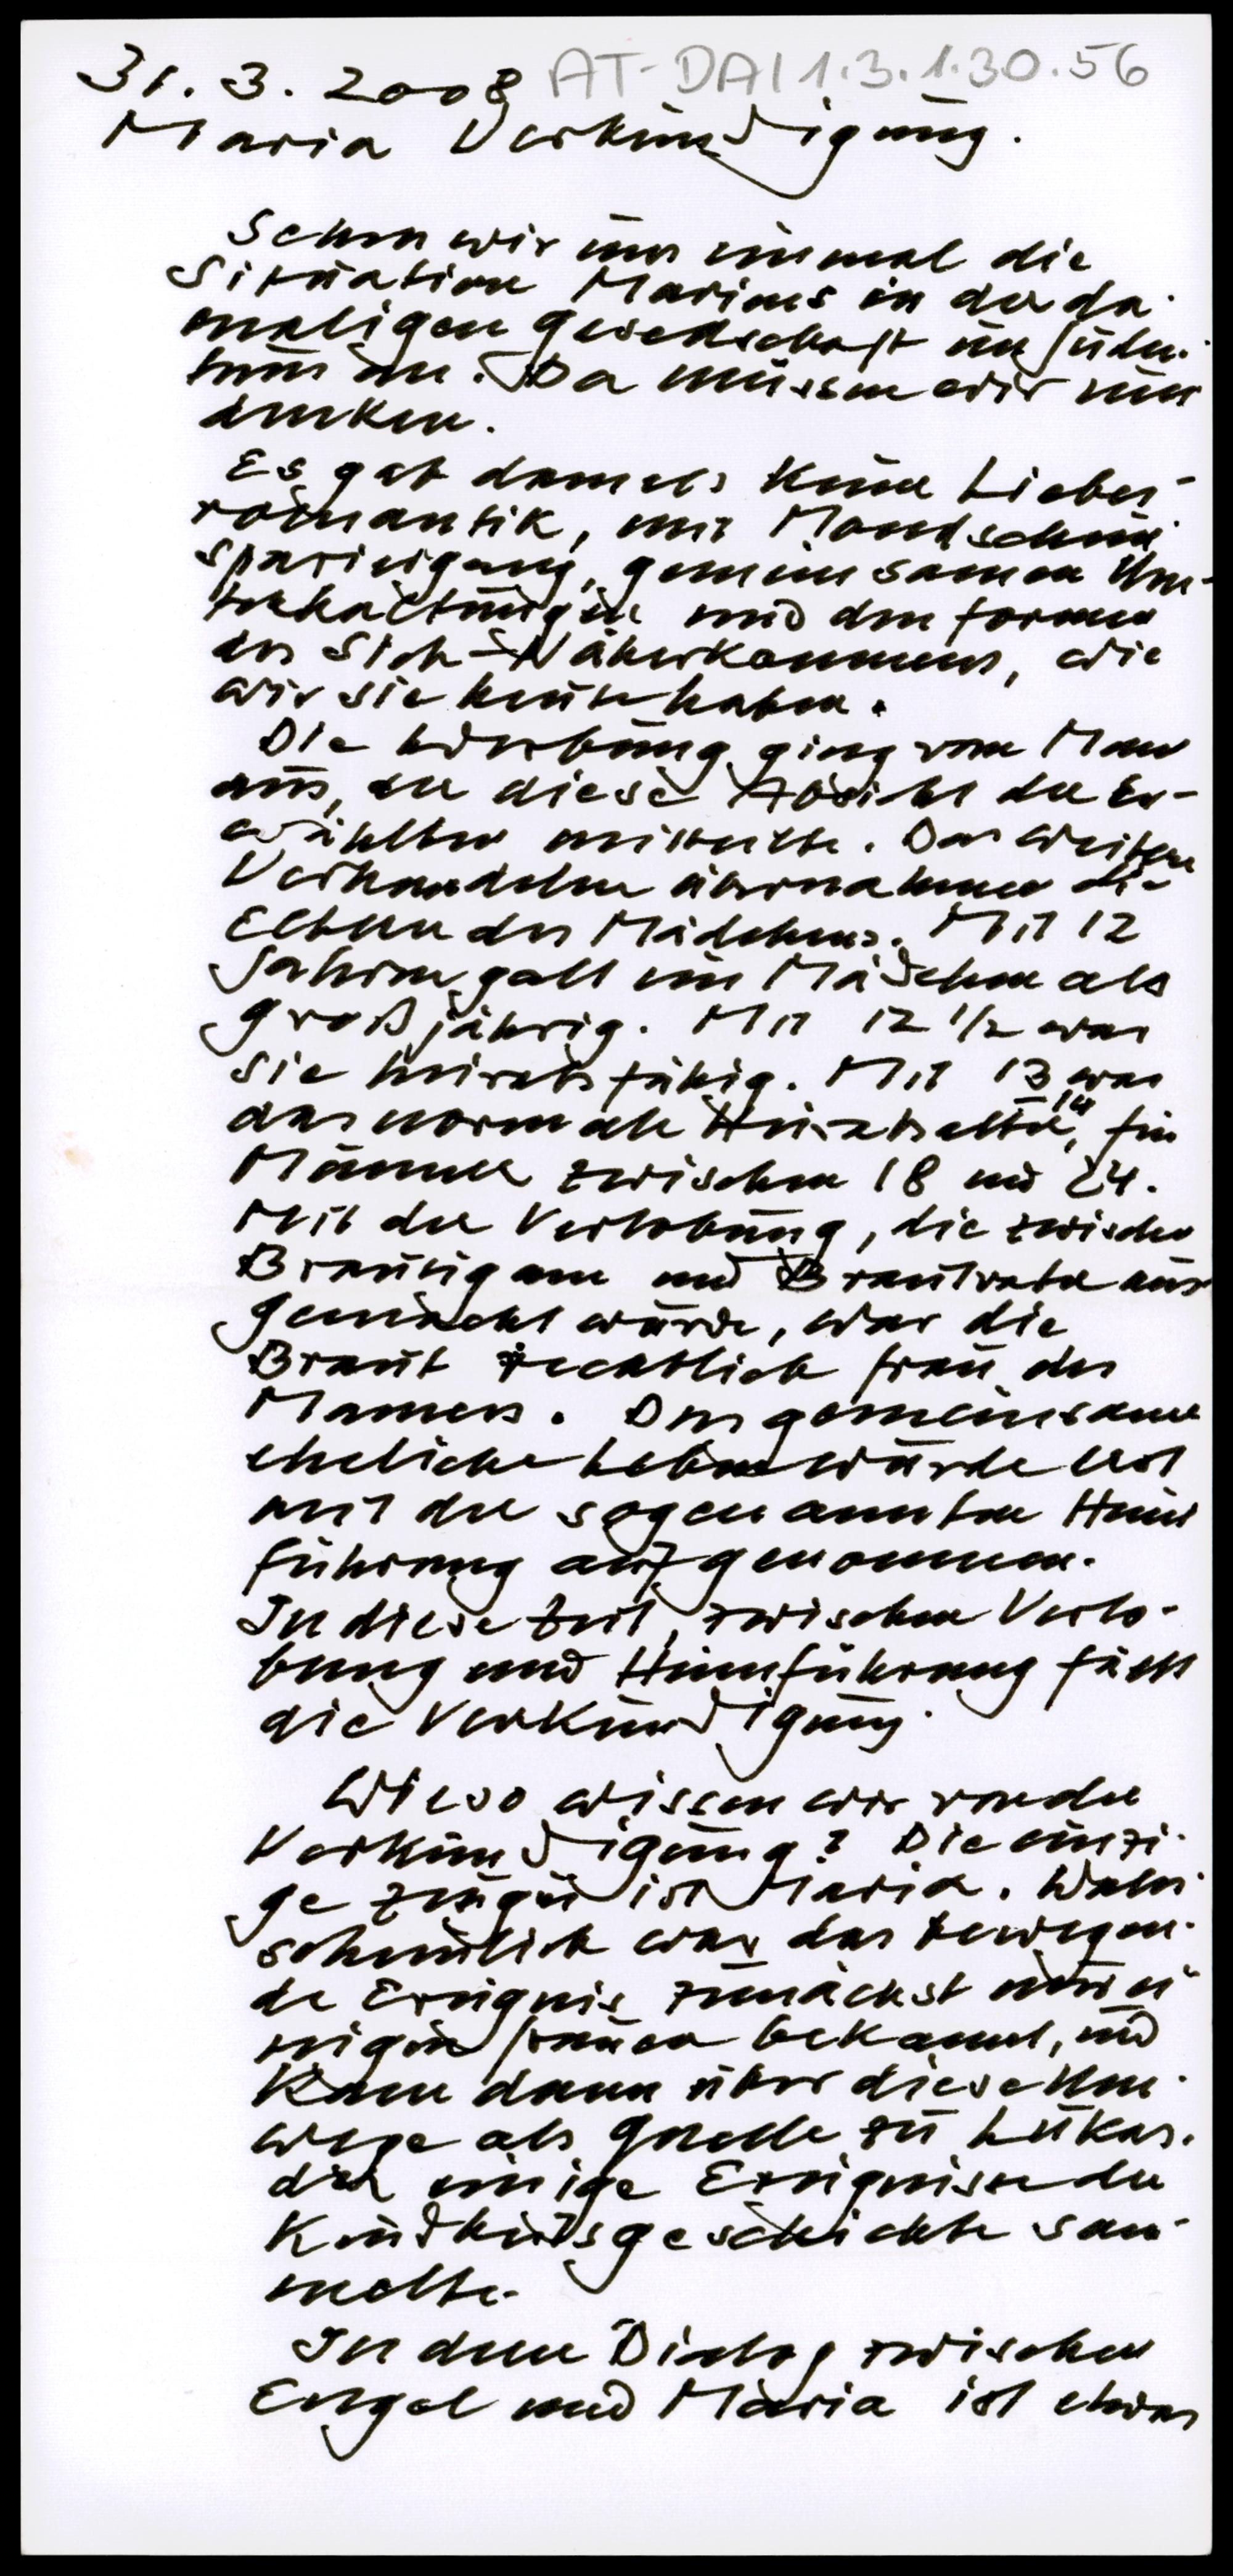 31.3.2008 AT-DAI 1.3.1.30.56
Maria Verkündigung.
Sehen wir uns einmal die
Situation Mariens in der da-
maligen Gesellschaft im Juden-
tum an. Da müssen wir um
denken.
Es gab damals keine Liebes-
romantik, mit Mondschein
spaziergang, gemeinsamen Un-
terhaltungen und den Formen
des Sich-Näherkommens, wie
wir sie heute haben.
Die Werbung ging vom Mann
aus, der diese Absicht der Er-
wählten mitteilte. Das weitere
Verhandeln übernahmen die
Eltern des Mädchens. Mit 12
Jahren galt ein Mädchen als
großjährig. Mit 12 1/2 war
sie heiratsfähig. Mit 13, 14 war
das normale Heiratsalter, für
Männer zwischen 18 und 24.
Mit der Verlobung, die zwischen
Bräutigam und Brautvater aus
gemacht wurde, war die
Braut rechtlich Frau des
Mannes. Das gemeinsame
eheliche Leben wurde erst
mit der sogenannten Heim
führung aufgenommen.
In diese Zeit, zwischen Verlo-
bung und Heimführung fällt
die Verkündigung.
Wieso wissen wir von der
Verkündigung? Die einzi-
ge Zeugin ist Maria. Wahr-
scheinlich war das bewegen-
de Ereignis zunächst nur ei-
nigen Frauen bekannt, und
kam dann über diese Um-
wege als Quelle zu Lukas.
der einige Ereignisse der
Kindheitsgeschichte sam-
melte.
In dem Dialog zwischen
Engel und Maria ist etwas